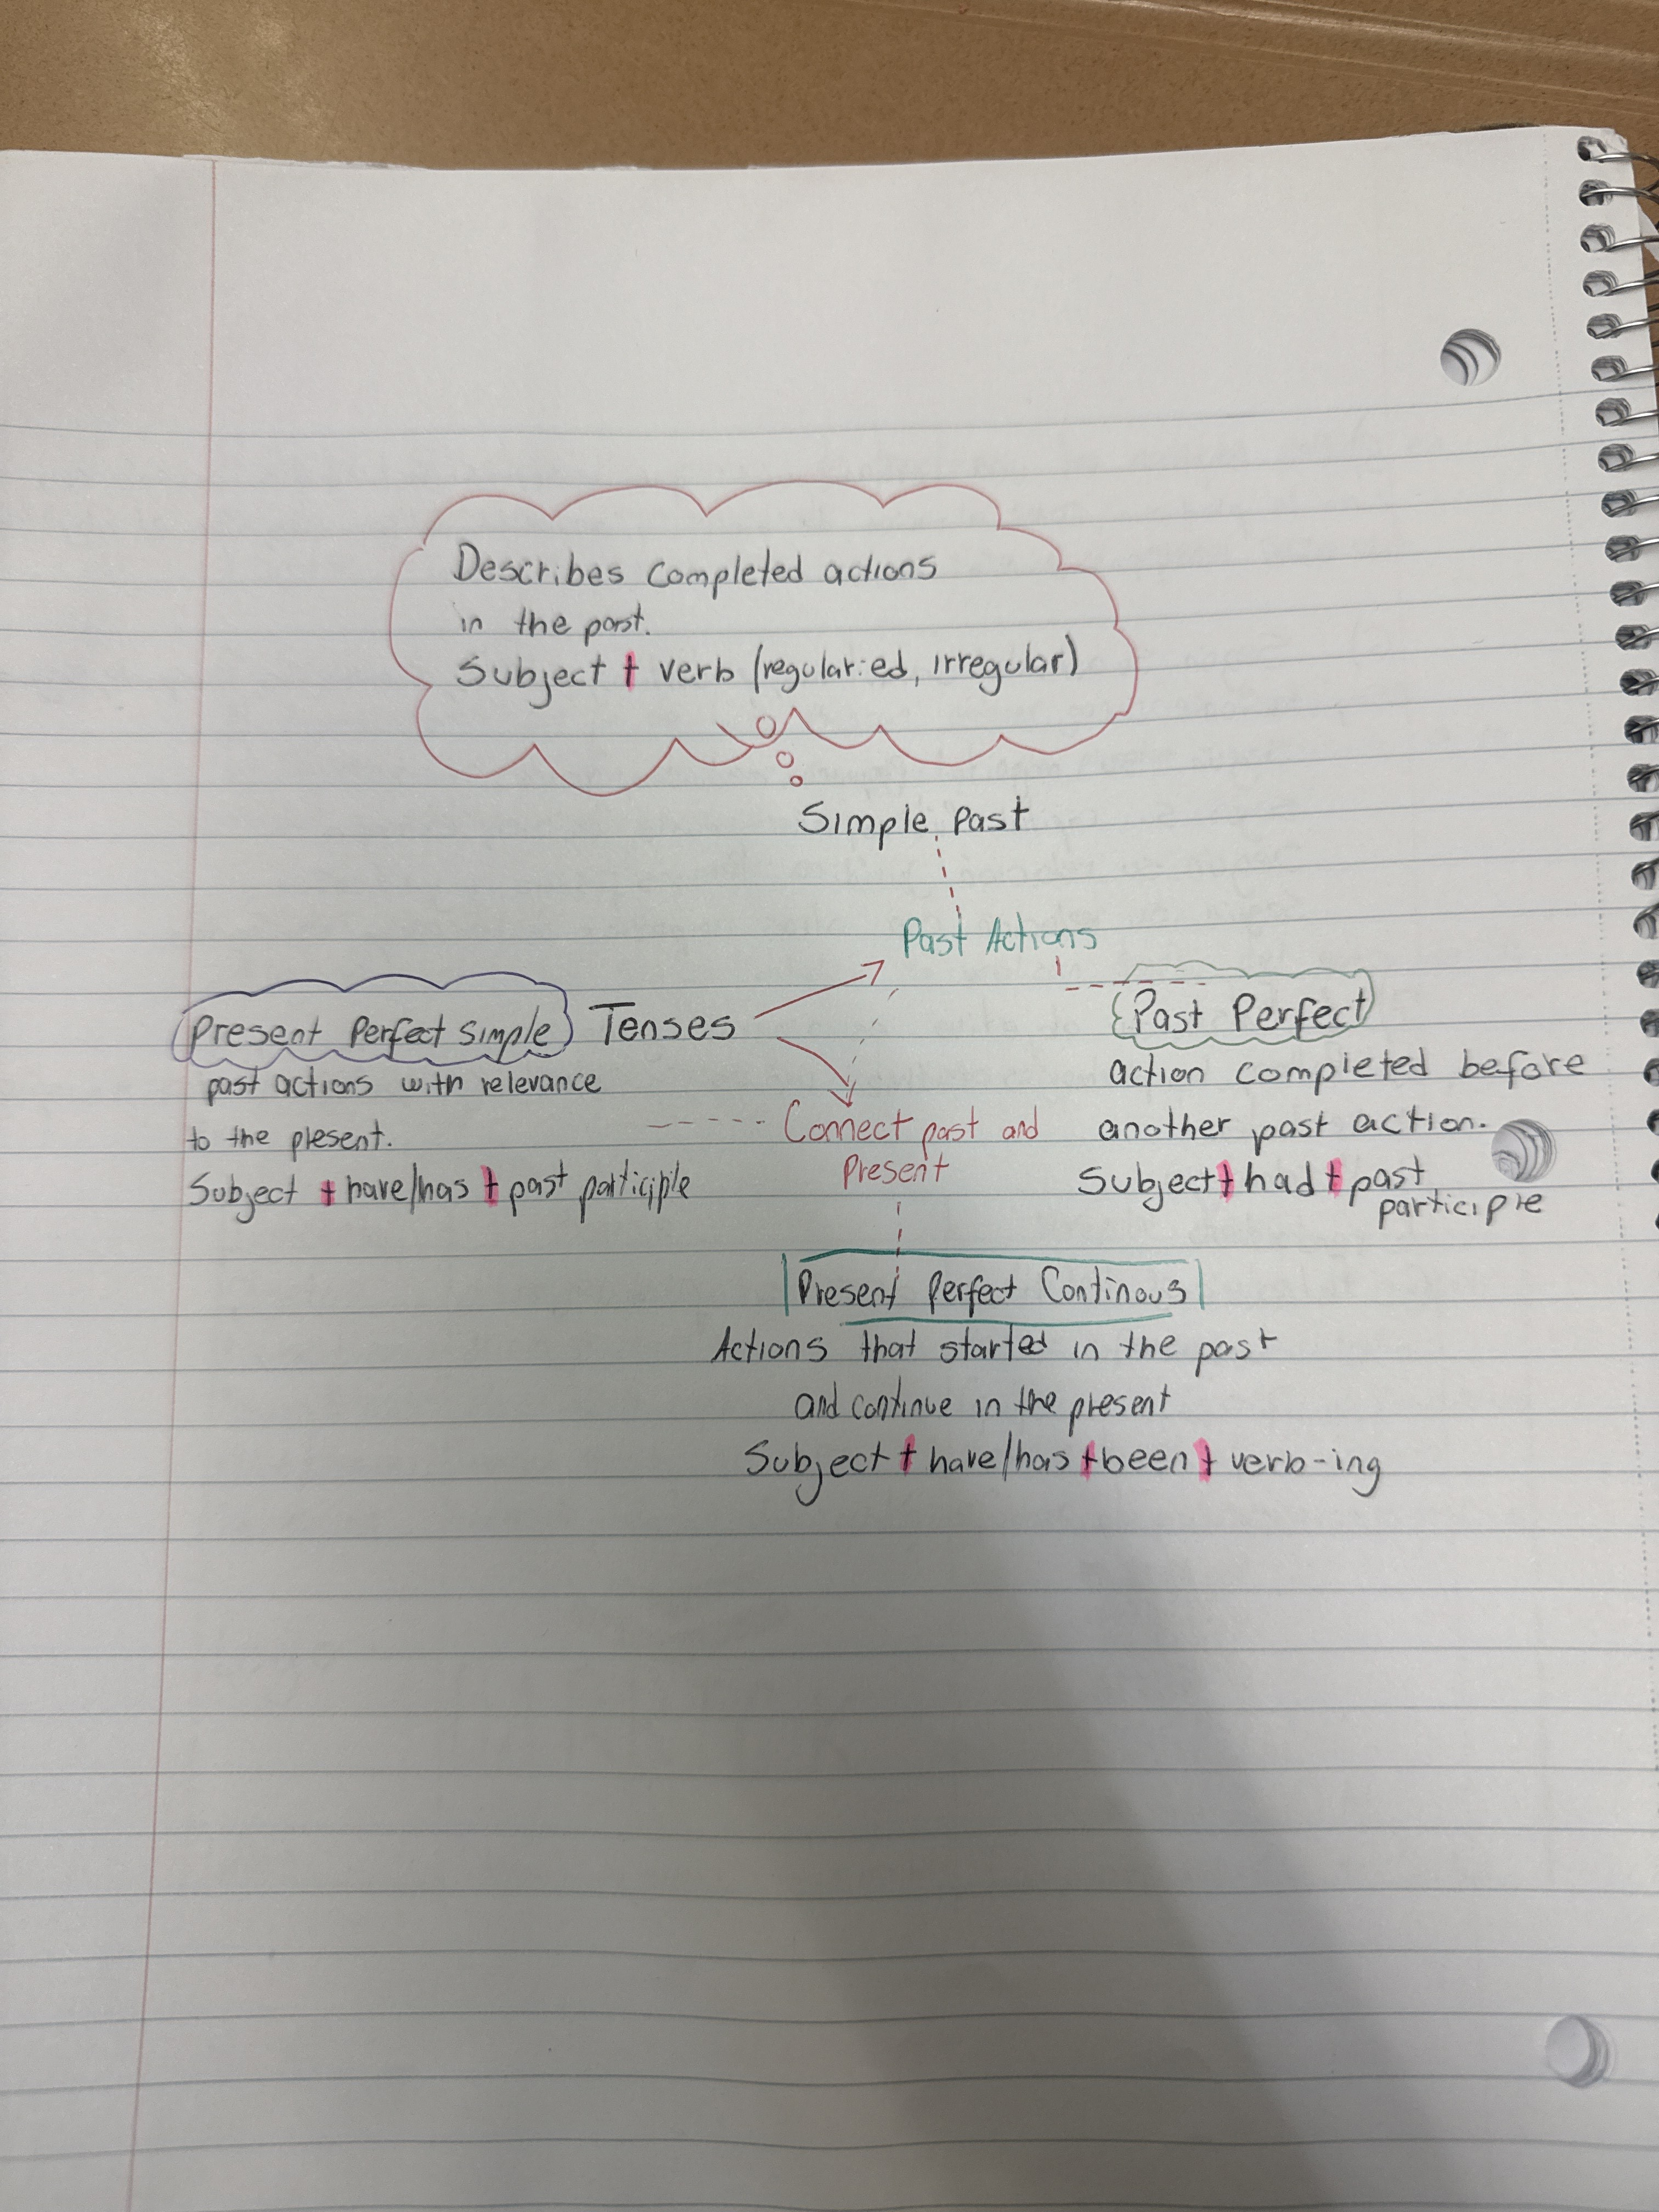 Describes completed actions
in the past.
Subject + verb (regular:ed, irregular)
Simple Past
Past Actions
Present Perfect Simple
Tenses
past actions with relevance
to the present.
Subject + have/has + past participle
Past Perfect
action completed before
another past action.
Subject + had + past
participle
Connect past and
Present
Present Perfect Continous
Actions that started in the past
and continue in the present
Subject + have/has + been + verb-ing